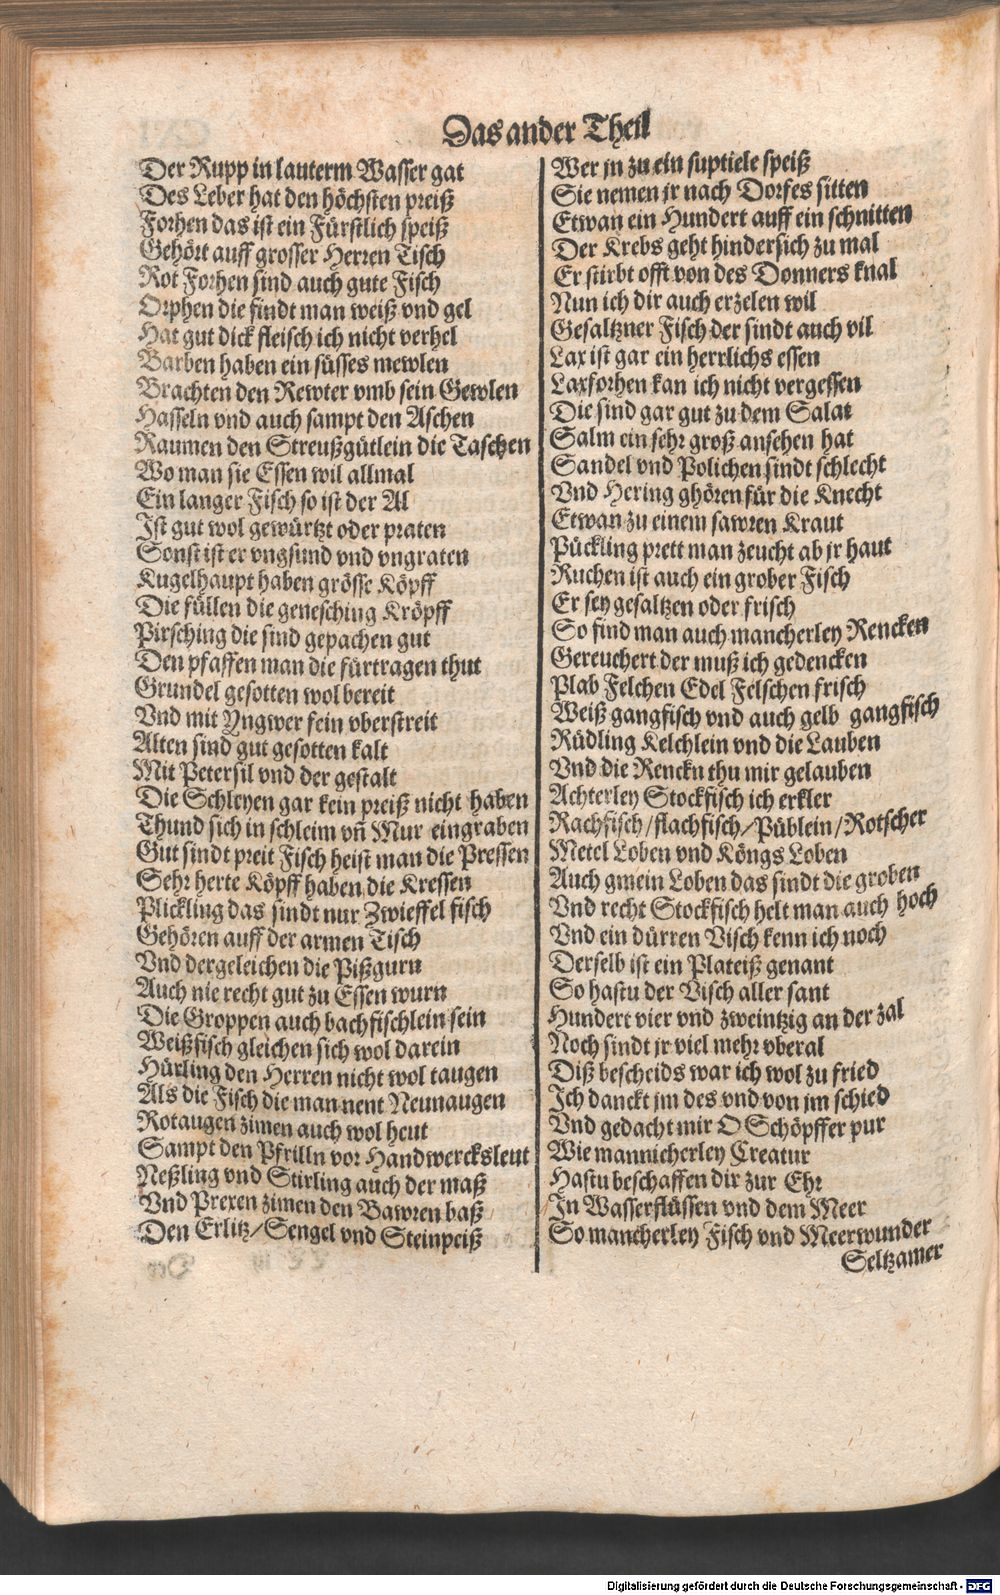 Das ander Theil
Der Rupp in lauterm Wasser gat
Des Leber hat den höchsten preiß
Forhen das ist ein Fürstlich speiß
Gehört auff grosser Herren Tisch
Rot Forhen sind auch gute Fisch
Orphen die findt man weiß vnd gel
Hat gut dick fleisch ich nicht verhel
Barben haben ein süsses mewlen
Brachten den Rewter vmb sein Gewlen
Hasseln vnd auch sampt den Aschen
Raumen den Streußgütlein die Taschen
Wo man sie Essen wil allmal
Ein langer Fisch so ist der Al
Ist gut wol gewürtzt oder praten
Sonst ist er vngsund vnd vngraten
Kugelhaupt haben grösse Köpff
Die füllen die genesching Kröpff
Pirsching die sind gepachen gut
Den pfaffen man die fürtragen thut
Grundel gesotten wol bereit
Vnd mit Yngwer fein vberstreit
Alten sind gut gesotten kalt
Mit Petersil vnd der gestalt
Die Schleyen gar kein preiß nicht haben
Thund sich in schleim vñ Mur eingraben
Gut sindt preit Fisch heist man die Pressen
Sehr herte Köpff haben die Kressen
Plickling das sindt nur Zwieffel fisch
Gehören auff der armen Tisch
Vnd dergeleichen die Pißgurn
Auch nie recht gut zu Essen wurn
Die Groppen auch bachfischlein sein
Weißfisch gleichen sich wol darein
Hürling den Herren nicht wol taugen
Als die Fisch die man nent Neunaugen
Rotaugen zimen auch wol heut
Sampt den Pfrilln vor Handwercksleut
Neßling vnd Stirling auch der maß
Vnd Prexen zimen den Bawren baß
Den Erlitz/Sengel vnd Steinpeiß
Wer jn zu ein suptiele speiß
Sie nemen jr nach Dorfes sitten
Etwan ein Hundert auff ein schnitten
Der Krebs geht hindersich zu mal
Er stirbt offt von des Donners knal
Nun ich dir auch erzelen wil
Gesaltzner Fisch der sindt auch vil
Lax ist gar ein herrlichs essen
Laxforhen kan ich nicht vergessen
Die sind gar gut zu dem Salat
Salm ein sehr groß ansehen hat
Sandel vnd Polichen sindt schlecht
Vnd Hering ghören für die Knecht
Etwan zu einem sawren Kraut
Pückling prett man zeucht ab jr haut
Ruchen ist auch ein grober Fisch
Er sey gesaltzen oder frisch
So find man auch mancherley Rencken
Gereuchert der muß ich gedencken
Plab Felchen Edel Felschen frisch
Weiß gangfisch vnd auch gelb gangfisch
Rüdling Kelchlein vnd die Lauben
Vnd die Renckn thu mir gelauben
Achterley Stockfisch ich erkler
Rachfisch/flachfisch/Püblein/Rotscher
Metel Loben vnd Köngs Loben
Auch gmein Loben das sindt die groben
Vnd recht Stockfisch helt man auch hoch
Vnd ein dürren Visch kenn ich noch
Derselb ist ein Plateiß genant
So hastu der Visch aller sant
Hundert vier vnd zweintzig an der zal
Noch sindt jr viel mehr vberal
Diß bescheids war ich wol zu fried
Ich danckt jm des vnd von jm schied
Vnd gedacht mir O Schöpffer pur
Wie mannicherley Creatur
Hastu beschaffen dir zur Ehr
In Wasserflüssen vnd dem Meer
So mancherley Fisch vnd Meerwunder
Seltzamer
Digitalisierung gefördert durch die Deutsche Forschungsgemeinschaft - DFG